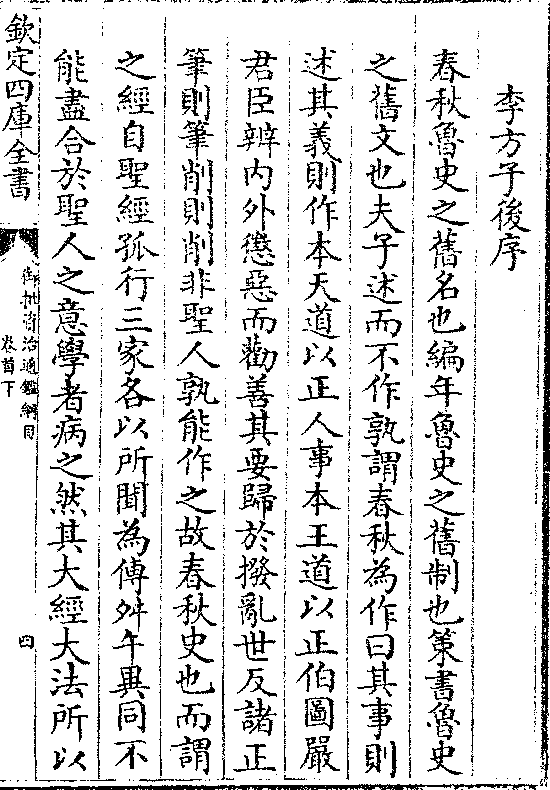 李方子後序
春秋魯史之舊名也編年魯史之舊制也策書魯史
之舊文也夫子述而不作孰謂春秋為作曰其事則
述其義則作本天道以正人事本王道以正伯圖嚴
君臣辨内外懲惡而勸善其要歸於撥亂世反諸正
筆則筆削則削非聖人孰能作之故春秋史也而謂
之經自聖經孤行三家各以所聞為傳舛午異同不
能盡合於聖人之意學者病之然其大經大法所以
欽定四庫全書
御批資治通鑑綱目
卷首下
四